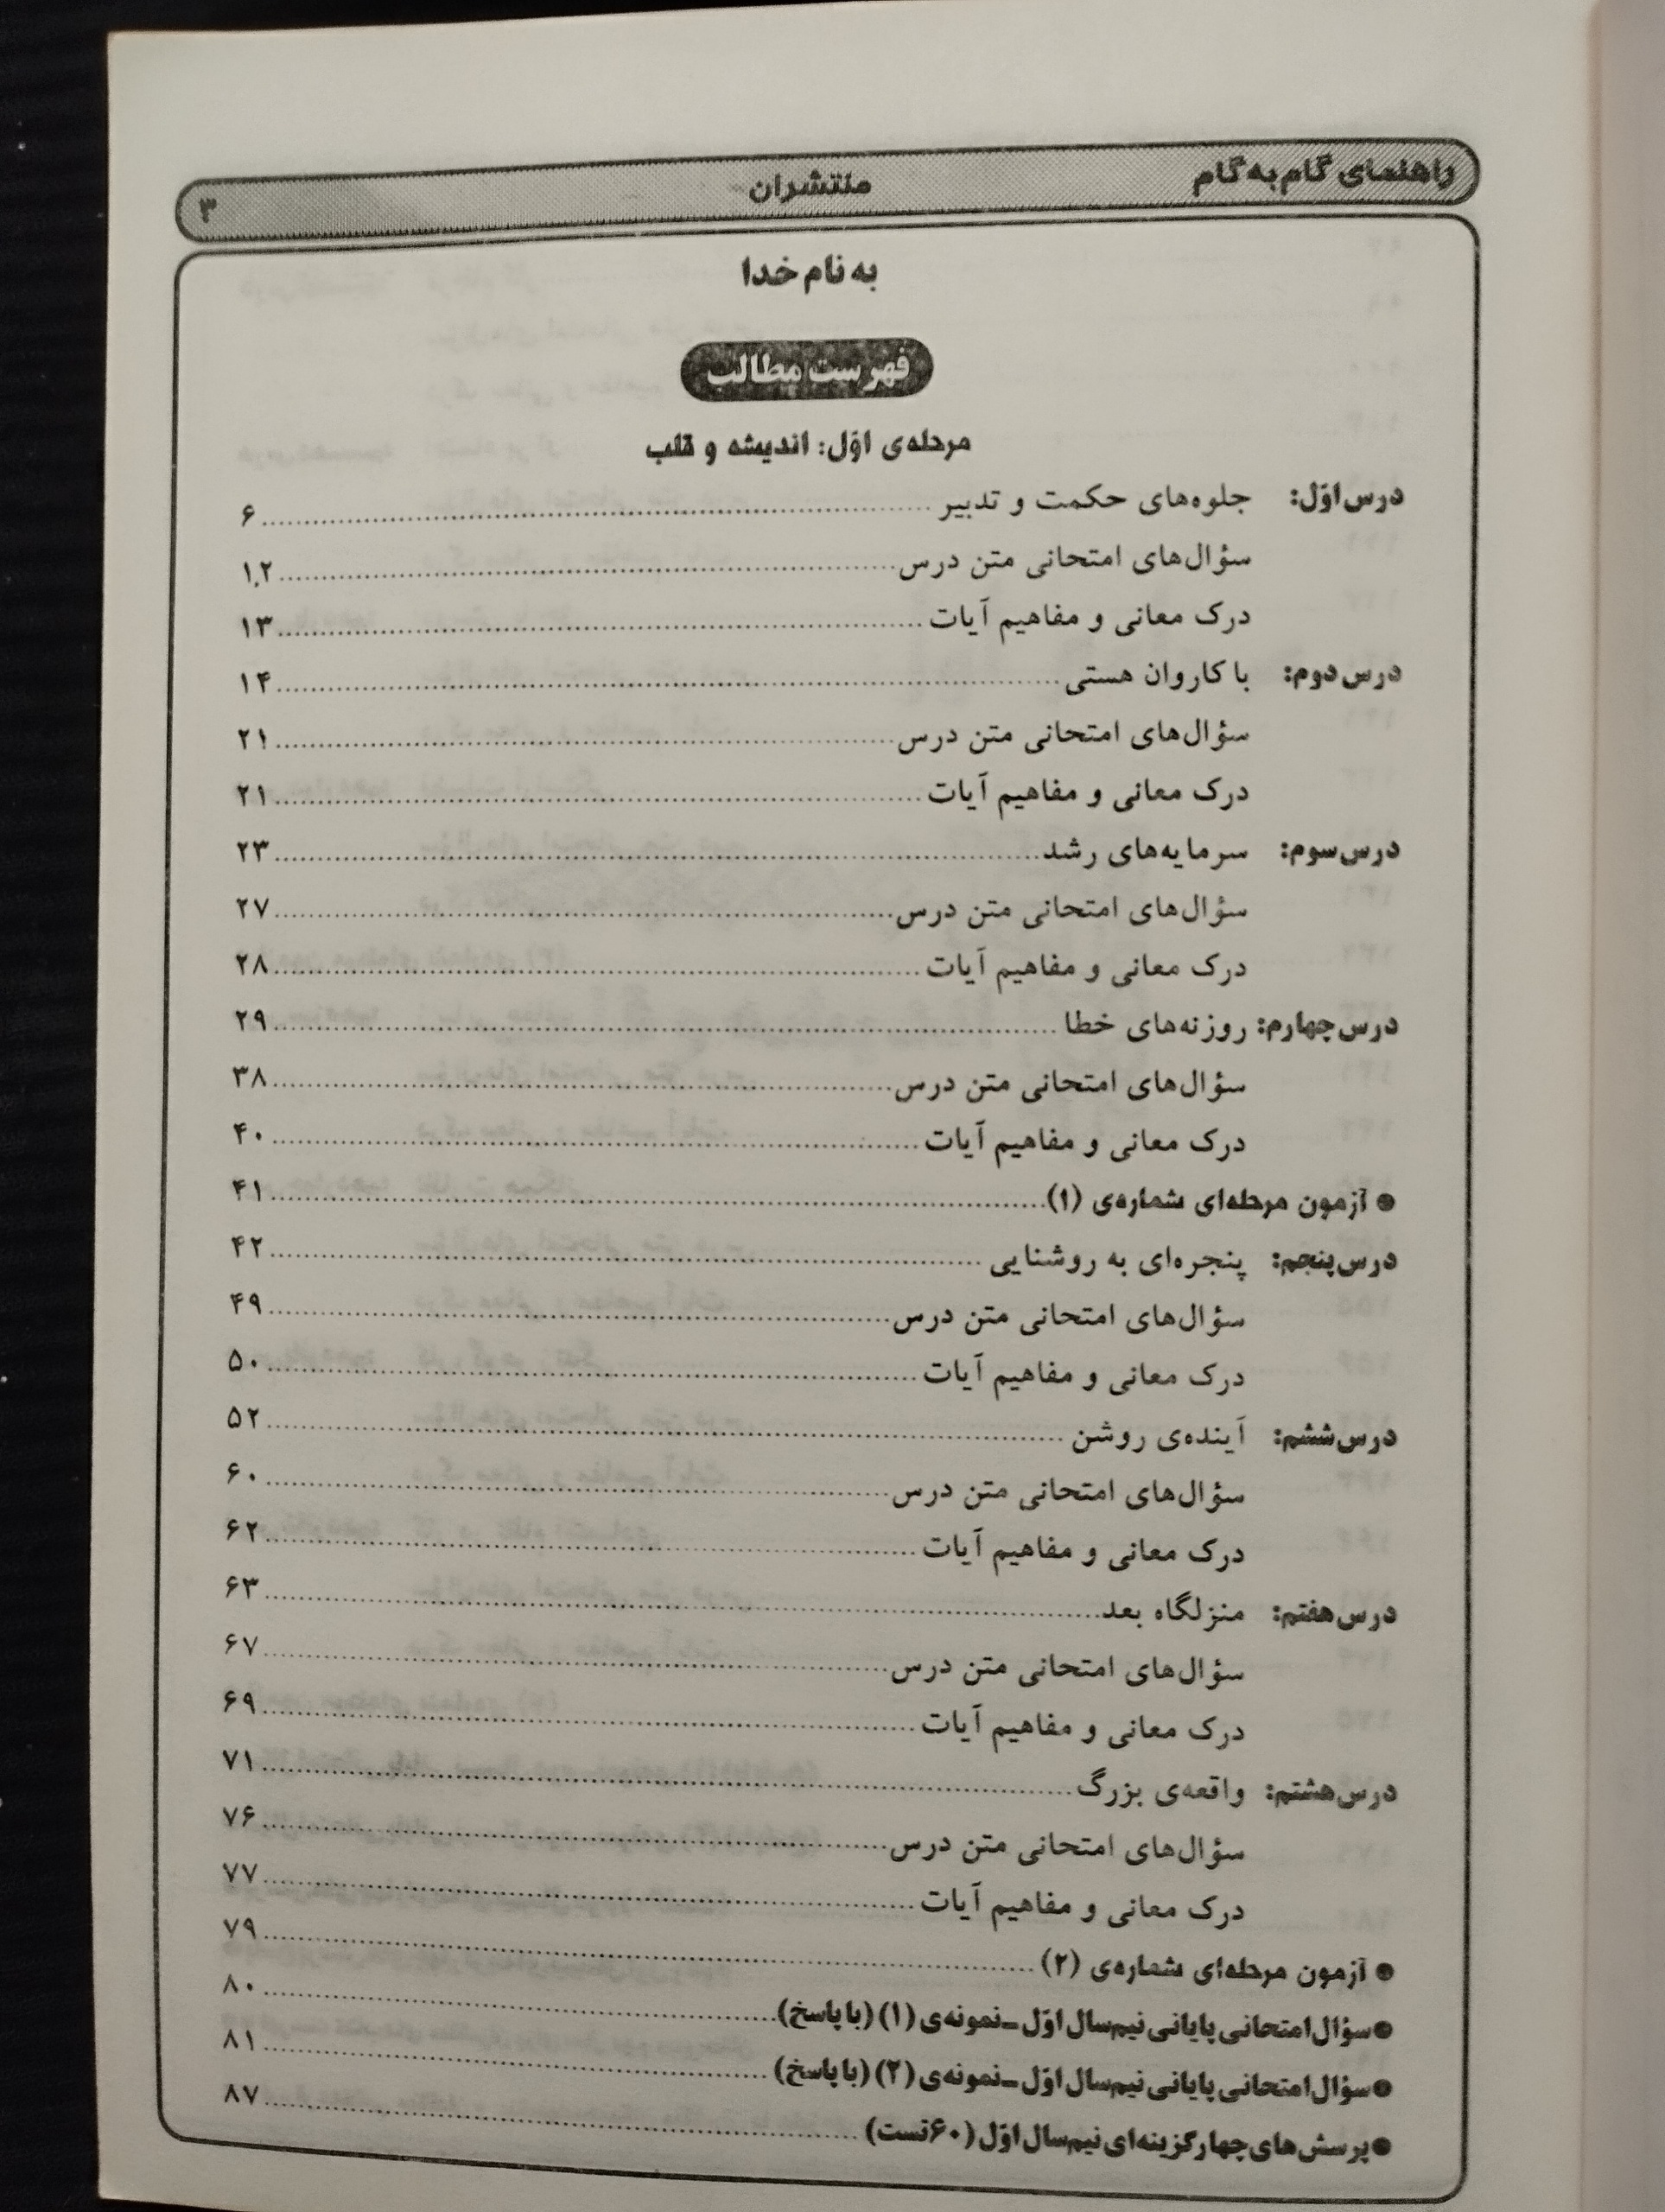 راهنمای گام‌به‌گام منتشران ۳
به نام خدا
فهرست مطالب
مرحله‌ی اوّل: اندیشه و قلب
درس اوّل: جلوه‌های حکمت و تدبیر ۶
سؤال‌های امتحانی متن درس ۱۲
درک معانی و مفاهیم آیات ۱۳
درس دوم: با کاروان هستی ۱۴
سؤال‌های امتحانی متن درس ۲۱
درک معانی و مفاهیم آیات ۲۱
درس سوم: سرمایه‌های رشد ۲۳
سؤال‌های امتحانی متن درس ۲۷
درک معانی و مفاهیم آیات ۲۸
درس چهارم: روزنه‌های خطا ۲۹
سؤال‌های امتحانی متن درس ۳۸
درک معانی و مفاهیم آیات ۴۰
● آزمون مرحله‌ای شماره‌ی (۱) ۴۱
درس پنجم: پنجره‌ای به روشنایی ۴۲
سؤال‌های امتحانی متن درس ۴۹
درک معانی و مفاهیم آیات ۵۰
درس ششم: آینده‌ی روشن ۵۲
سؤال‌های امتحانی متن درس ۶۰
درک معانی و مفاهیم آیات ۶۲
درس هفتم: منزلگاه بعد ۶۳
سؤال‌های امتحانی متن درس ۶۷
درک معانی و مفاهیم آیات ۶۹
درس هشتم: واقعه‌ی بزرگ ۷۱
سؤال‌های امتحانی متن درس ۷۶
درک معانی و مفاهیم آیات ۷۷
● آزمون مرحله‌ای شماره‌ی (۲) ۷۹
● سؤال امتحانی پایانی نیم‌سال اوّل ـ نمونه‌ی (۱) (با پاسخ) ۸۰
● سؤال امتحانی پایانی نیم‌سال اوّل ـ نمونه‌ی (۲) (با پاسخ) ۸۱
● پرسش‌های چهارگزینه‌ای نیم‌سال اوّل (۶۰ تست) ۸۷